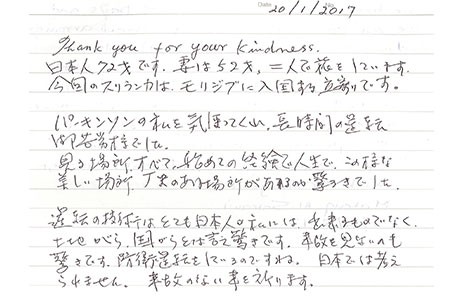 20/1/2017
Thank you for your kindness.
日本人72才です。妻は52才、二人で旅をしています。
今回のスリランカは、モリジブに入国する立寄りです。
パーキンソンの私を気使ってくれ、長時間の運転
御苦労様でした。
見る場所すべて、始めての経験で人生で、この様な
美しい場所、 のある場所があるのか驚ろきでした。
運転の技術はとても日本人の私には、出来るものでなく、
土地がら、国がらとは言え驚きです。事故を見ないのも
驚きです。防衛運転をしているのですね。日本では考え
られません。事故のない事を祈ります。